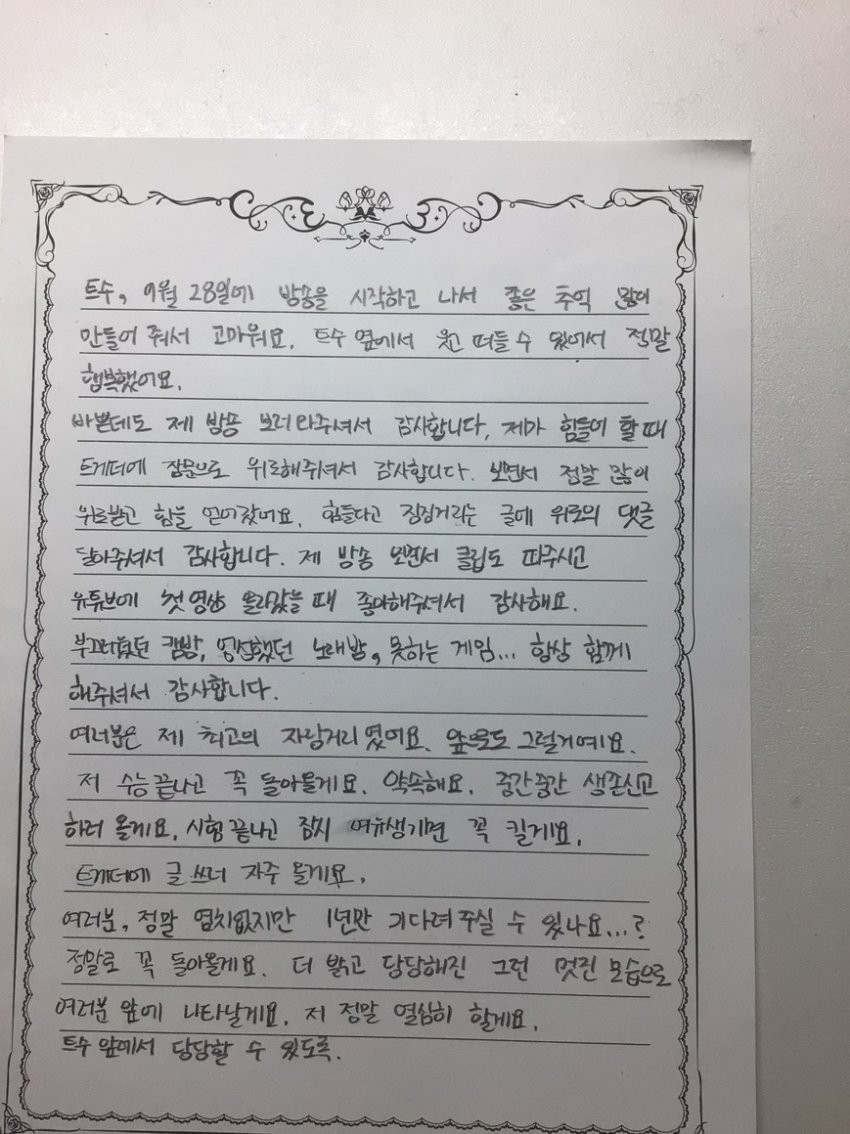 트수, 9월 28일에 방송을 시작하고 나서 좋은 추억 많이
만들어 줘서 고마워요. 트수 옆에서 웃고 떠들 수 있어서 정말
행복했어요.
바쁜데도 제 방송 보러와주셔서 감사합니다. 제가 힘들어 할 때
트게더에 장문으로 위로해주셔서 감사합니다. 보면서 정말 많이
위로받고 힘을 얻어갔어요. 힘들다고 징징거리는 글에 위로의 댓글
달아주셔서 감사합니다. 제 방송 보면서 클립도 따주시고
유튜브에 첫 영상 올라갔을 때 좋아해주셔서 감사해요.
부끄러웠던 캠방, 어색했던 노래방, 못하는 게임... 항상 함께
해주셔서 감사합니다.
여러분은 제 최고의 자랑거리였어요. 앞으로도 그럴거예요.
저 수능끝나고 꼭 돌아올게요. 약속해요. 중간중간 생존신고
하러 올게요. 시험 끝나고 잠시 여유생기면 꼭 킬게요.
트게더에 글 쓰러 자주 올게요.
여러분, 정말 염치없지만 1년만 기다려 주실 수 있나요...?
정말로 꼭 돌아올게요. 더 밝고 당당해진 그런 멋진 모습으로
여러분 앞에 나타날게요. 저 정말 열심히 할게요.
트수 앞에서 당당할 수 있도록.